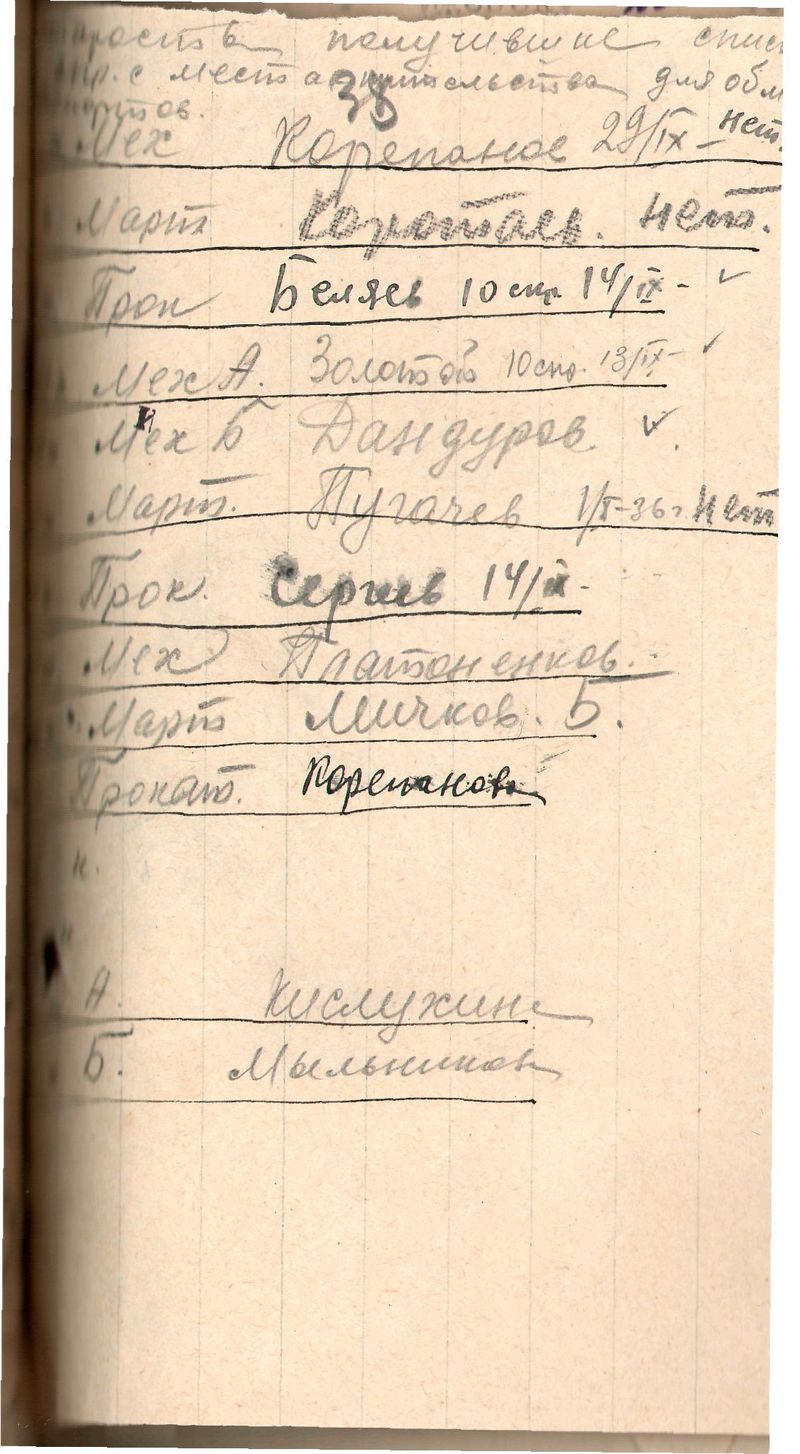 получившие спис
спр. с места жительства для обм
38
Мех Корепанов 29/IX – нет.
Март Коротаев. нет.
Прок Беляев 10 спр. 14/IX -
Мех А. Золотой 10 спр. 13/IX -
Мех Б Дандуров
Март. Пугачев 1/I-36 г нет
Прок. Сергеев 14/IX -
Мех Платоненков.
Март Мичков. Б.
Прокат. Корепанов
и.
А. Кислухин
Б. Мыльников